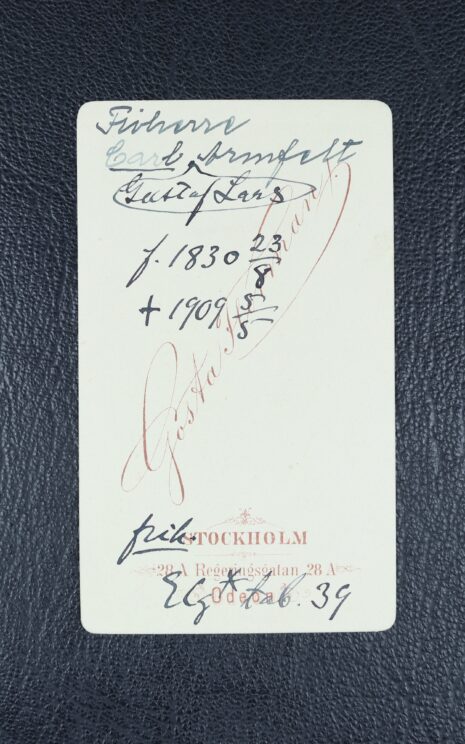 Friherre
Carl Armfelt
Gustaf Lars
f. 1830 23/8
† 1909 5/5
Gösta Florman
frih.
STOCKHOLM
28 A Regeringsgatan 28 A
Elg * tab. 39